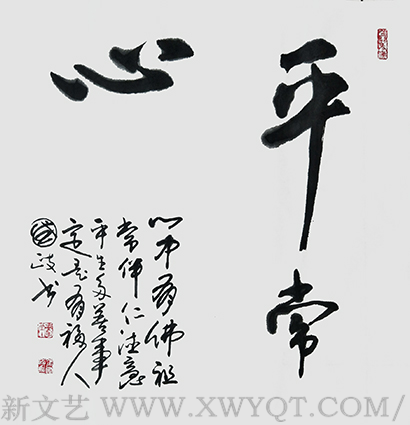 平常
心
心中有佛祖
常伴仁德意
平生多善事
定是有福人
政书
新文艺 WWW.XWYQT.COM/